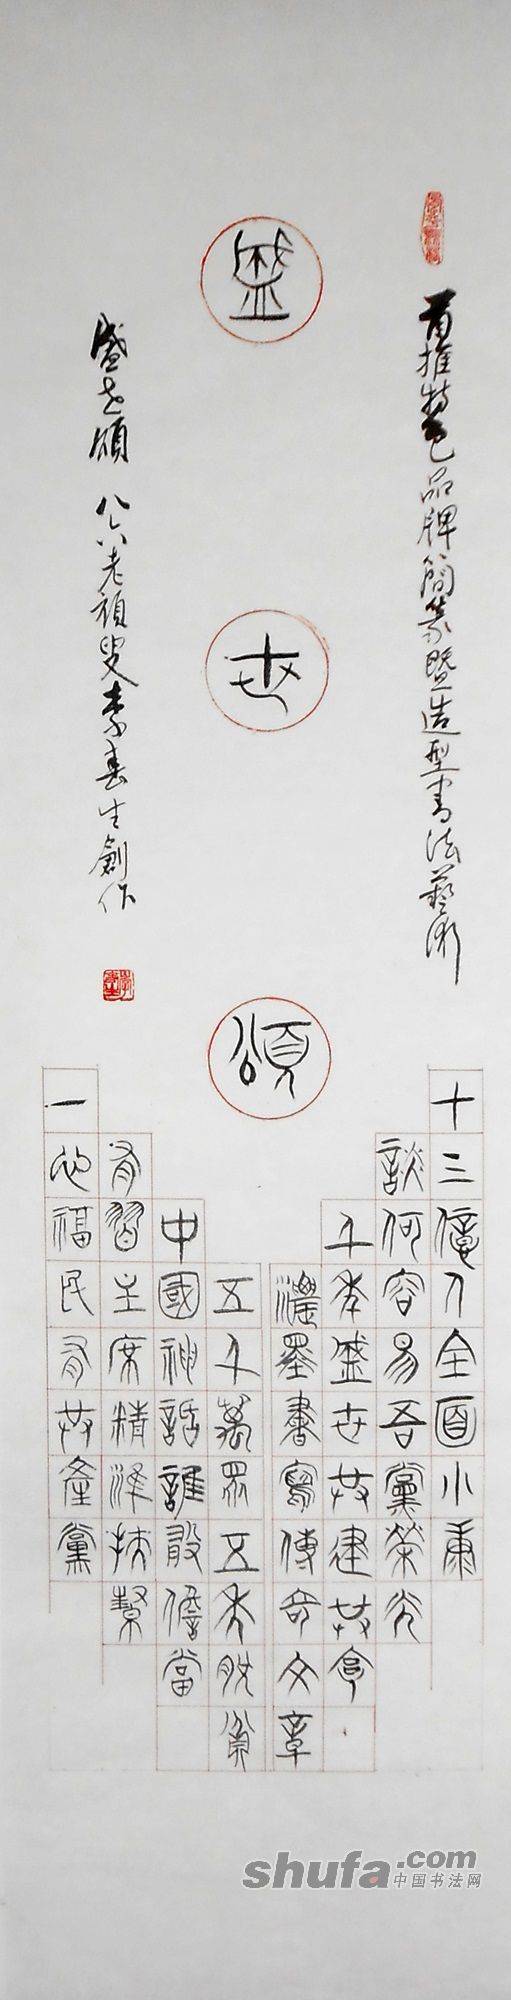 首推特色品牌簡篆暨造型書法藝術
盛
世
頌
十三億人全面小康
談何容易吾黨榮光
千年盛世共建共享
濃墨書寫傳奇文章
五千萬眾五年脫貧
中國神話誰敢擔當
有習主席精準扶幫
一心福民有共產黨
盛世頌 八六老頑叟李春生創作
shufa.com
中国书法网